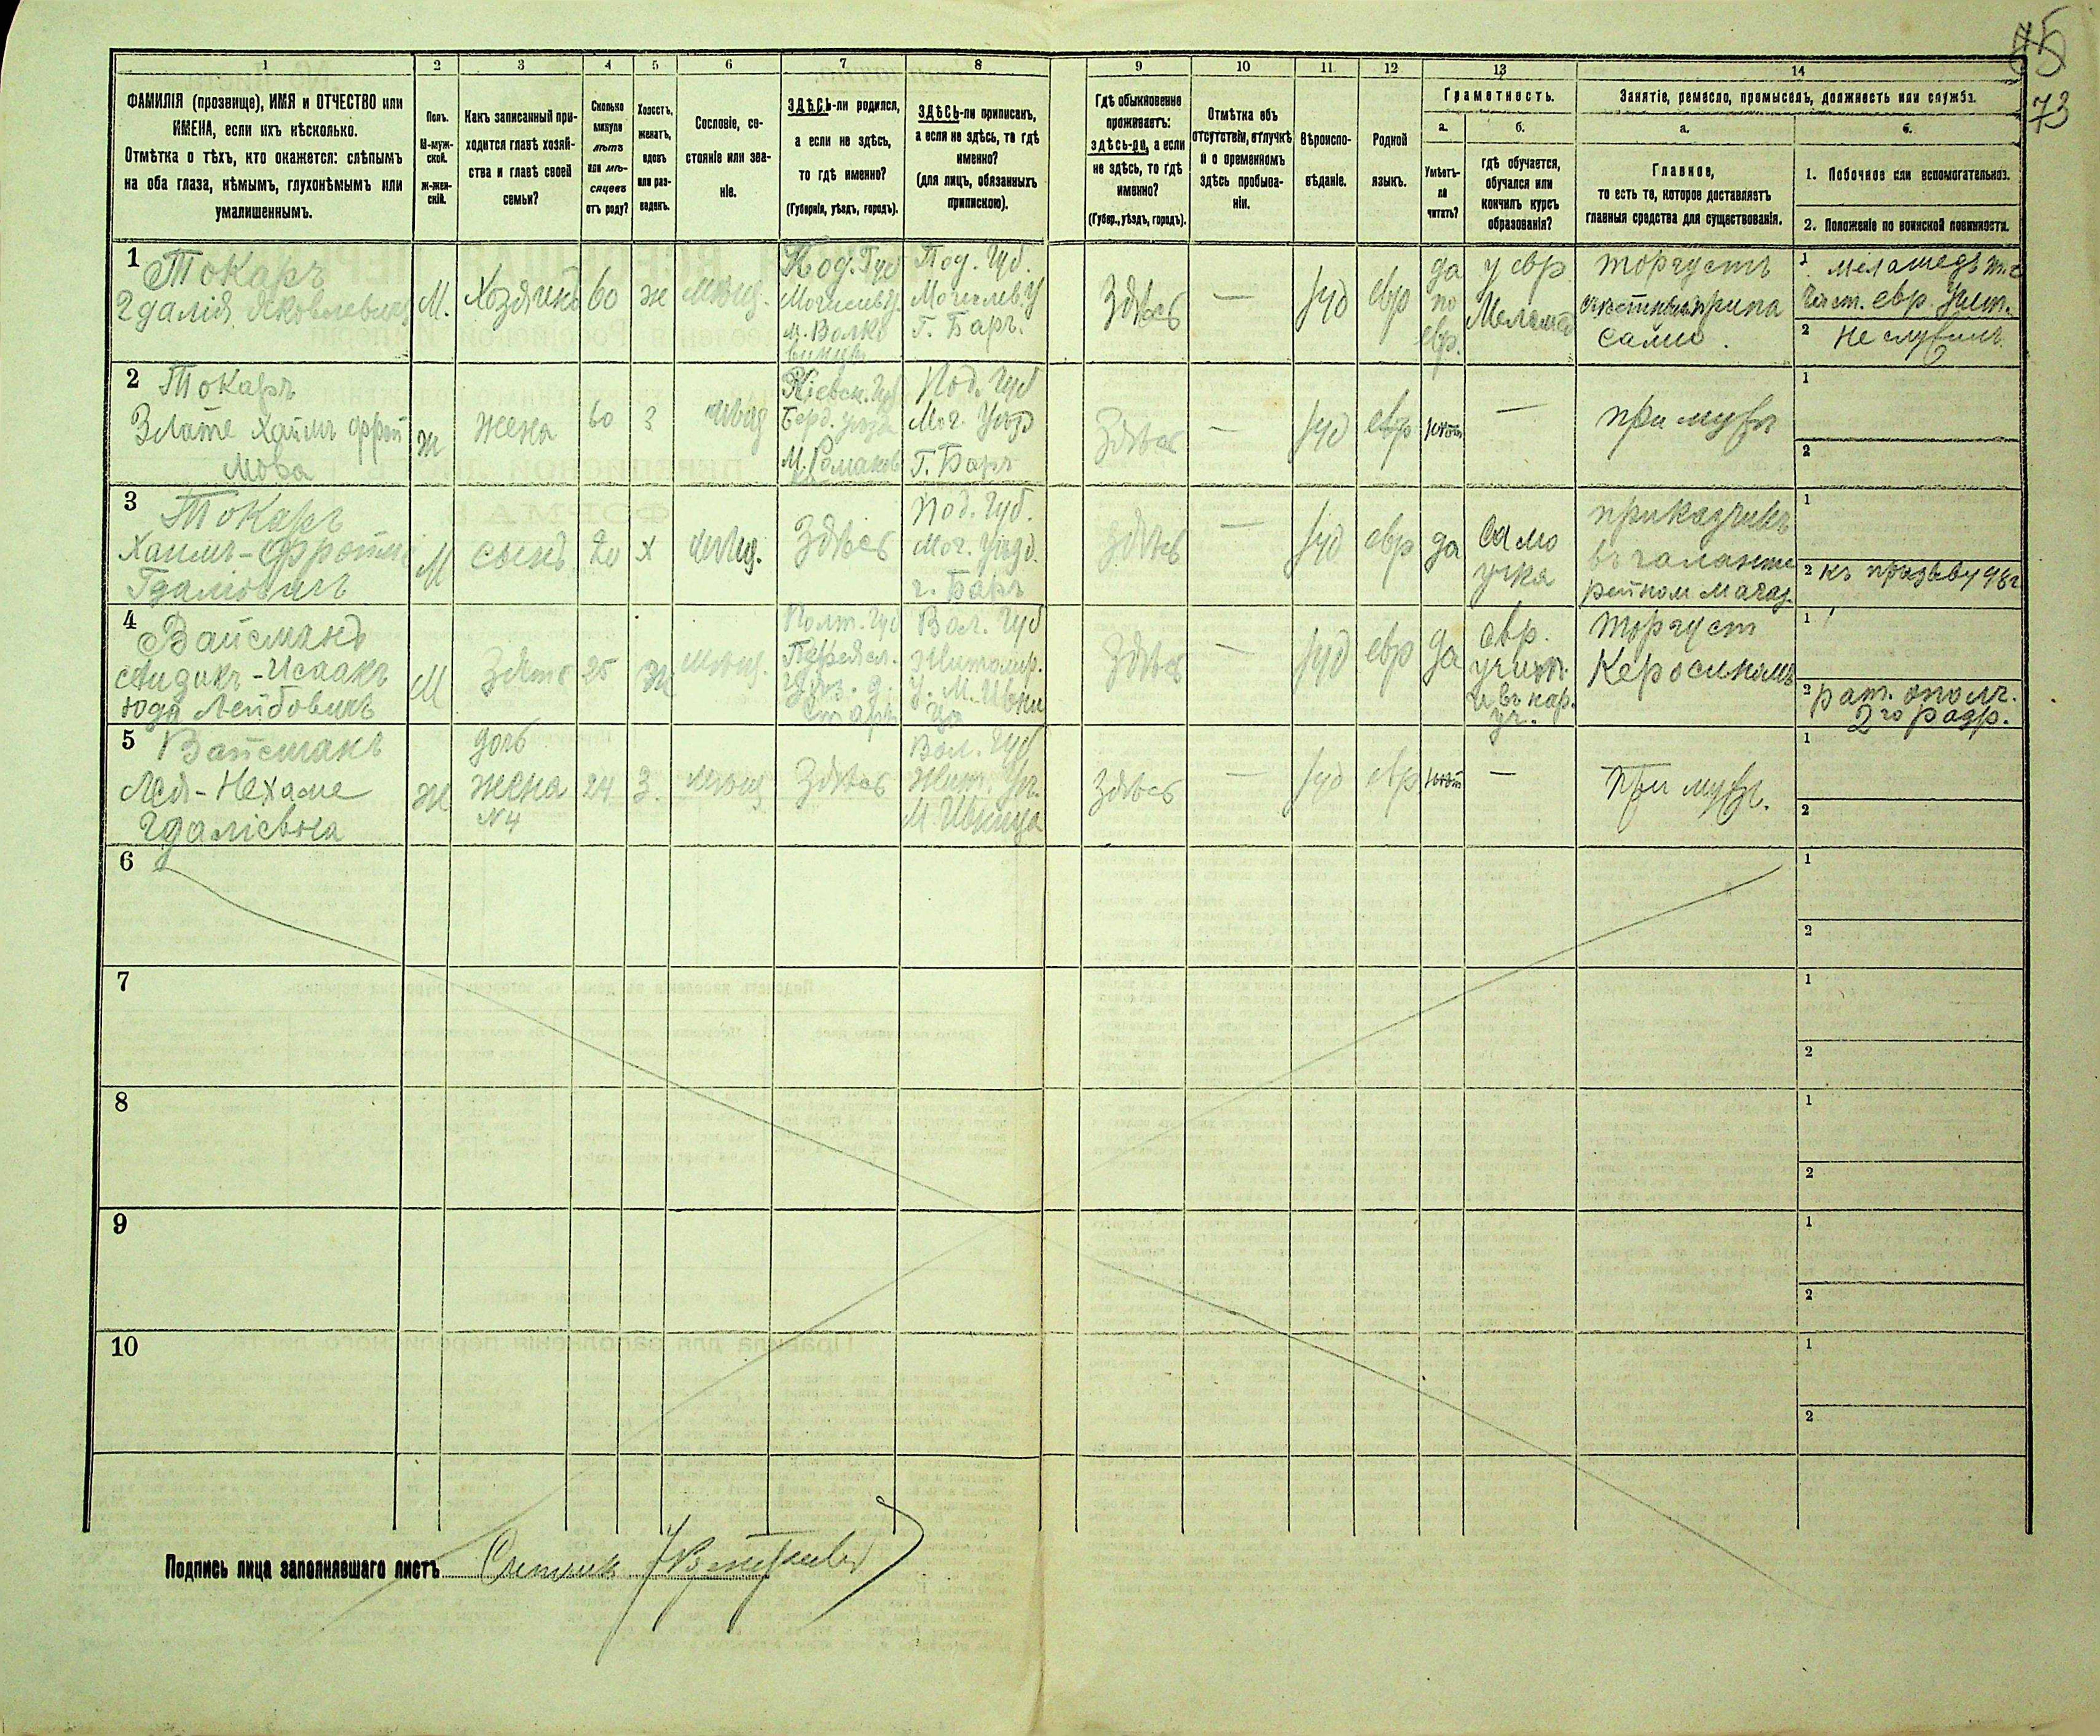 75
73
1 2 3 4 5 6 7 8 9 10 11 12 13 14
ФАМИЛІЯ (прозвище), ИМЯ и ОТЧЕСТВО или
ИМЕНА, если ихъ нѣсколько.
Отмѣтка о тѣхъ, кто окажется: слѣпымъ
на оба глаза, нѣмымъ, глухонѣмымъ или
умалишеннымъ.
Полъ.
М-муж-
ской.
ж-жен-
скій.
Какъ записанный при-
ходится главѣ хозяй-
ства и главѣ своей
семьи?
Сколько
минуло
лѣтъ
или мѣ-
сяцевъ
отъ роду?
Холостъ,
женатъ,
вдовъ
или раз-
веденъ.
Сословіе, со-
стояніе или зва-
ніе.
ЗДѢСЬ-ли родился,
а если не здѣсь,
то гдѣ именно?
(Губернія, уѣздъ, городъ).
ЗДѢСЬ-ли приписанъ,
а если не здѣсь, то гдѣ
именно?
(для лицъ, обязанныхъ
припискою).
Гдѣ обыкновенно
проживаетъ:
здѣсь-ли, а если
не здѣсь, то гдѣ
именно?
(Губер., уѣздъ, городъ).
Отмѣтка объ
отсутствіи, отлучкѣ
и о временномъ
здѣсь пребыва-
ніи.
Вѣроиспо-
вѣданіе.
Родной
языкъ.
Грамотность.
а.
Умѣетъ-
ли
читать?
б.
гдѣ обучается,
обучался или
кончилъ курсъ
образованія?
Занятіе, ремесло, промыселъ, должность или служба.
а.
Главное,
то есть то, которое доставляетъ
главныя средства для существованія.
б.
1. Побочное или вспомогательное.
2. Положеніе по воинской повинности.
1
Токаръ
Гдалія Яковлевичъ
М.
Хозяинъ
60
ж
мѣщ.
Под. Губ
Могилевъ У.
м. Волко
винцы
Под. Губ.
Могилев. У
Г. Баръ.
Здѣсь
—
Іуд
евр
да
по
евр.
у евр
Меламед
торгуетъ
сами.
1
2 Не служилъ
2
Токаръ
Злате Хаимъ Фрой
мова
ж
жена
60
з
мѣщ
Кіевск. Губ
Берд. уѣзд
М. Романов
ка
Под. Губ
Мог. Уѣзд
Г. Баръ
Здѣсь
—
Іуд
евр
нѣтъ
—
при мужѣ
1
2
3
Токаръ
Хаимъ-Фроим
Гдаліовичъ
М
сынъ
20
х
мѣщ.
Здѣсь
Под. Губ.
Мог. Уѣзд.
г. Баръ
Здѣсь
—
Іуд
евр
да
Само
учка
приказчикъ
въ галанте
рейном магаз.
1
2 къ призыву 98 г
4
Вайсманъ
Исаакъ
Юда Лейбовичъ
М
Зять
25
ж
мѣщ.
Полт. Губ
Переясл.
Вол. Губ
Житомир.
У. М. Ивни
ца
Здѣсь
—
Іуд
евр
да
евр.
училищ.
и въ нар.
уч.
торгует
Керосиномъ
1
2 рат. ополч.
2го разр.
5
Вайсманъ
Лея-Нехаме
Гдаліевна
ж
дочь
жена
N4
24
З.
мѣщ
Здѣсь
Вол. Губ
Жит. Уѣ.
М Ивница
Здѣсь
—
Іуд
евр
нѣт
—
При мужѣ.
1
2
6
1
2
7
1
2
8
1
2
9
1
2
10
1
2
Подпись лица заполнявшаго листъ